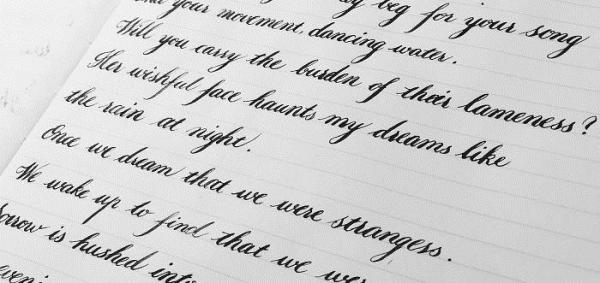 beg for your song
your movement, dancing-water.
Will you carry the burden of their lameness?
Her wishful face haunts my dreams like
the rain at night.
Once we dream that we were strangers.
We wake up to find that we
is hushed into